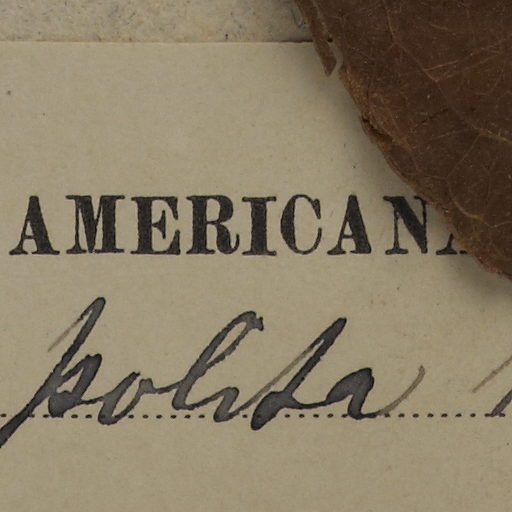 AMERICANA
polita